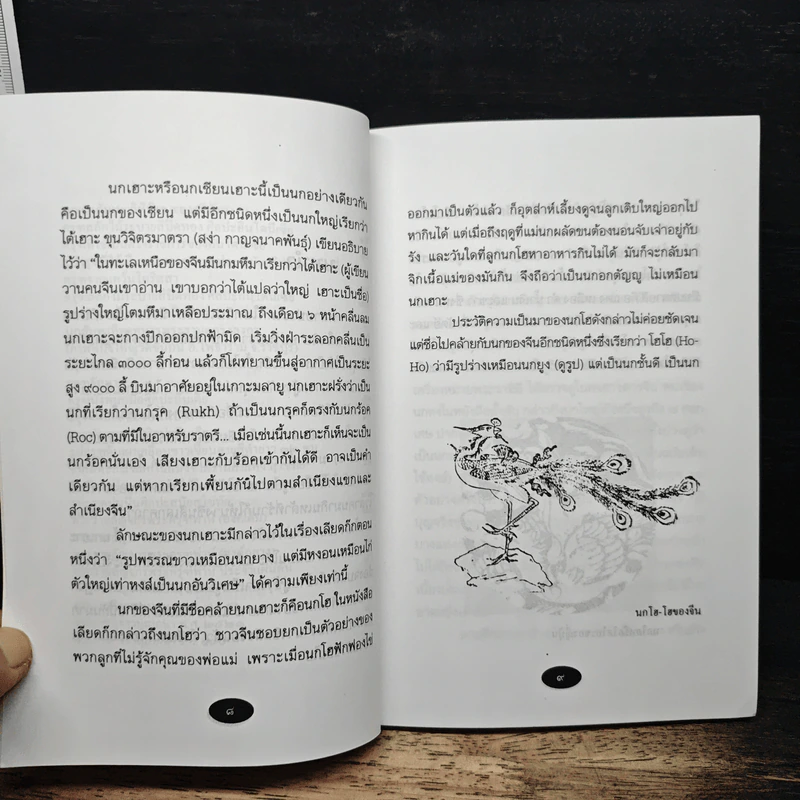 นกเฮาะหรือนกเซียนเฮาะนี้เป็นนกอย่างเดียวกัน
คือเป็นนกของเซียน แต่มีอีกชนิดหนึ่งเป็นนกใหญ่เรียกว่า
ได้เฮาะ ขุนวิจิตรมาตรา (สง่า กาญจนาคพันธุ์) เขียนอธิบาย
ไว้ว่า “ในทะเลเหนือของจีนมีนกมหึมาเรียกว่าได้เฮาะ (ผู้เขียน
วานคนจีนเขาอ่าน เขาบอกว่าได้แปลว่าใหญ่ เฮาะเป็นชื่อ)
รูปร่างใหญ่โตมหึมาเหลือประมาณ ถึงเดือน ๖ หน้าคลื่นลม
นกเฮาะจะกางปีกออกปกฟ้ามิด เริ่มวิ่งฝ่าระลอกคลื่นเป็น
ระยะไกล ๓๐๐๐ ลี้ก่อน แล้วก็โผทยานขึ้นสู่อากาศเป็นระยะ
สูง ๙๐๐๐ ลี้ บินมาอาศัยอยู่ในเกาะมลายู นกเฮาะฝรั่งว่าเป็น
นกที่เรียกว่านกรุค (Rukh) ถ้าเป็นนกรุคก็ตรงกับนกร้อค
(Roc) ตามที่มีในอาหรับราตรี... เมื่อเช่นนี้นกเฮาะก็เห็นจะเป็น
นกร้อคนั่นเอง เสียงเฮาะกับร้อคเข้ากันได้ดี อาจเป็นคำ
เดียวกัน แต่หากเรียกเพี้ยนกันไปตามสำเนียงแขกและ
สำเนียงจีน”
ลักษณะของนกเฮาะมีกล่าวไว้ในเรื่องเลียดก๊กตอน
หนึ่งว่า “รูปพรรณขาวเหมือนนกยาง แต่มีหงอนเหมือนไก่
ตัวใหญ่เท่าหงส์เป็นนกอันวิเศษ” ได้ความเพียงเท่านี้
นกของจีนที่มีชื่อคล้ายนกเฮาะก็คือนกโฮ ในหนังสือ
เลียดก๊กกล่าวถึงนกโฮว่า ชาวจีนชอบยกเป็นตัวอย่างของ
พวกลูกที่ไม่รู้จักคุณของพ่อแม่ เพราะเมื่อนกโฮฟักฟองไข่
๘
ออกมาเป็นตัวแล้ว ก็อุตส่าห์เลี้ยงดูจนลูกเติบใหญ่ออกไป
หากินได้ แต่เมื่อถึงฤดูที่แม่นกผลัดขนต้องนอนจับเจ่าอยู่กับ
รัง และวันใดที่ลูกนกโฮหาอาหารกินไม่ได้ มันก็จะกลับมา
จิกเนื้อแม่ของมันกิน จึงถือว่าเป็นนกอกตัญญู ไม่เหมือน
นกเฮาะ
ประวัติความเป็นมาของนกโฮดังกล่าวไม่ค่อยชัดเจน
แต่ชื่อไปคล้ายกับนกของจีนอีกชนิดหนึ่งซึ่งเรียกว่า โฮโฮ (Ho-
Ho) ว่ามีรูปร่างเหมือนนกยูง (ดูรูป) แต่เป็นนกชั้นดี เป็นนก
นกโฮ-โฮของจีน
๙